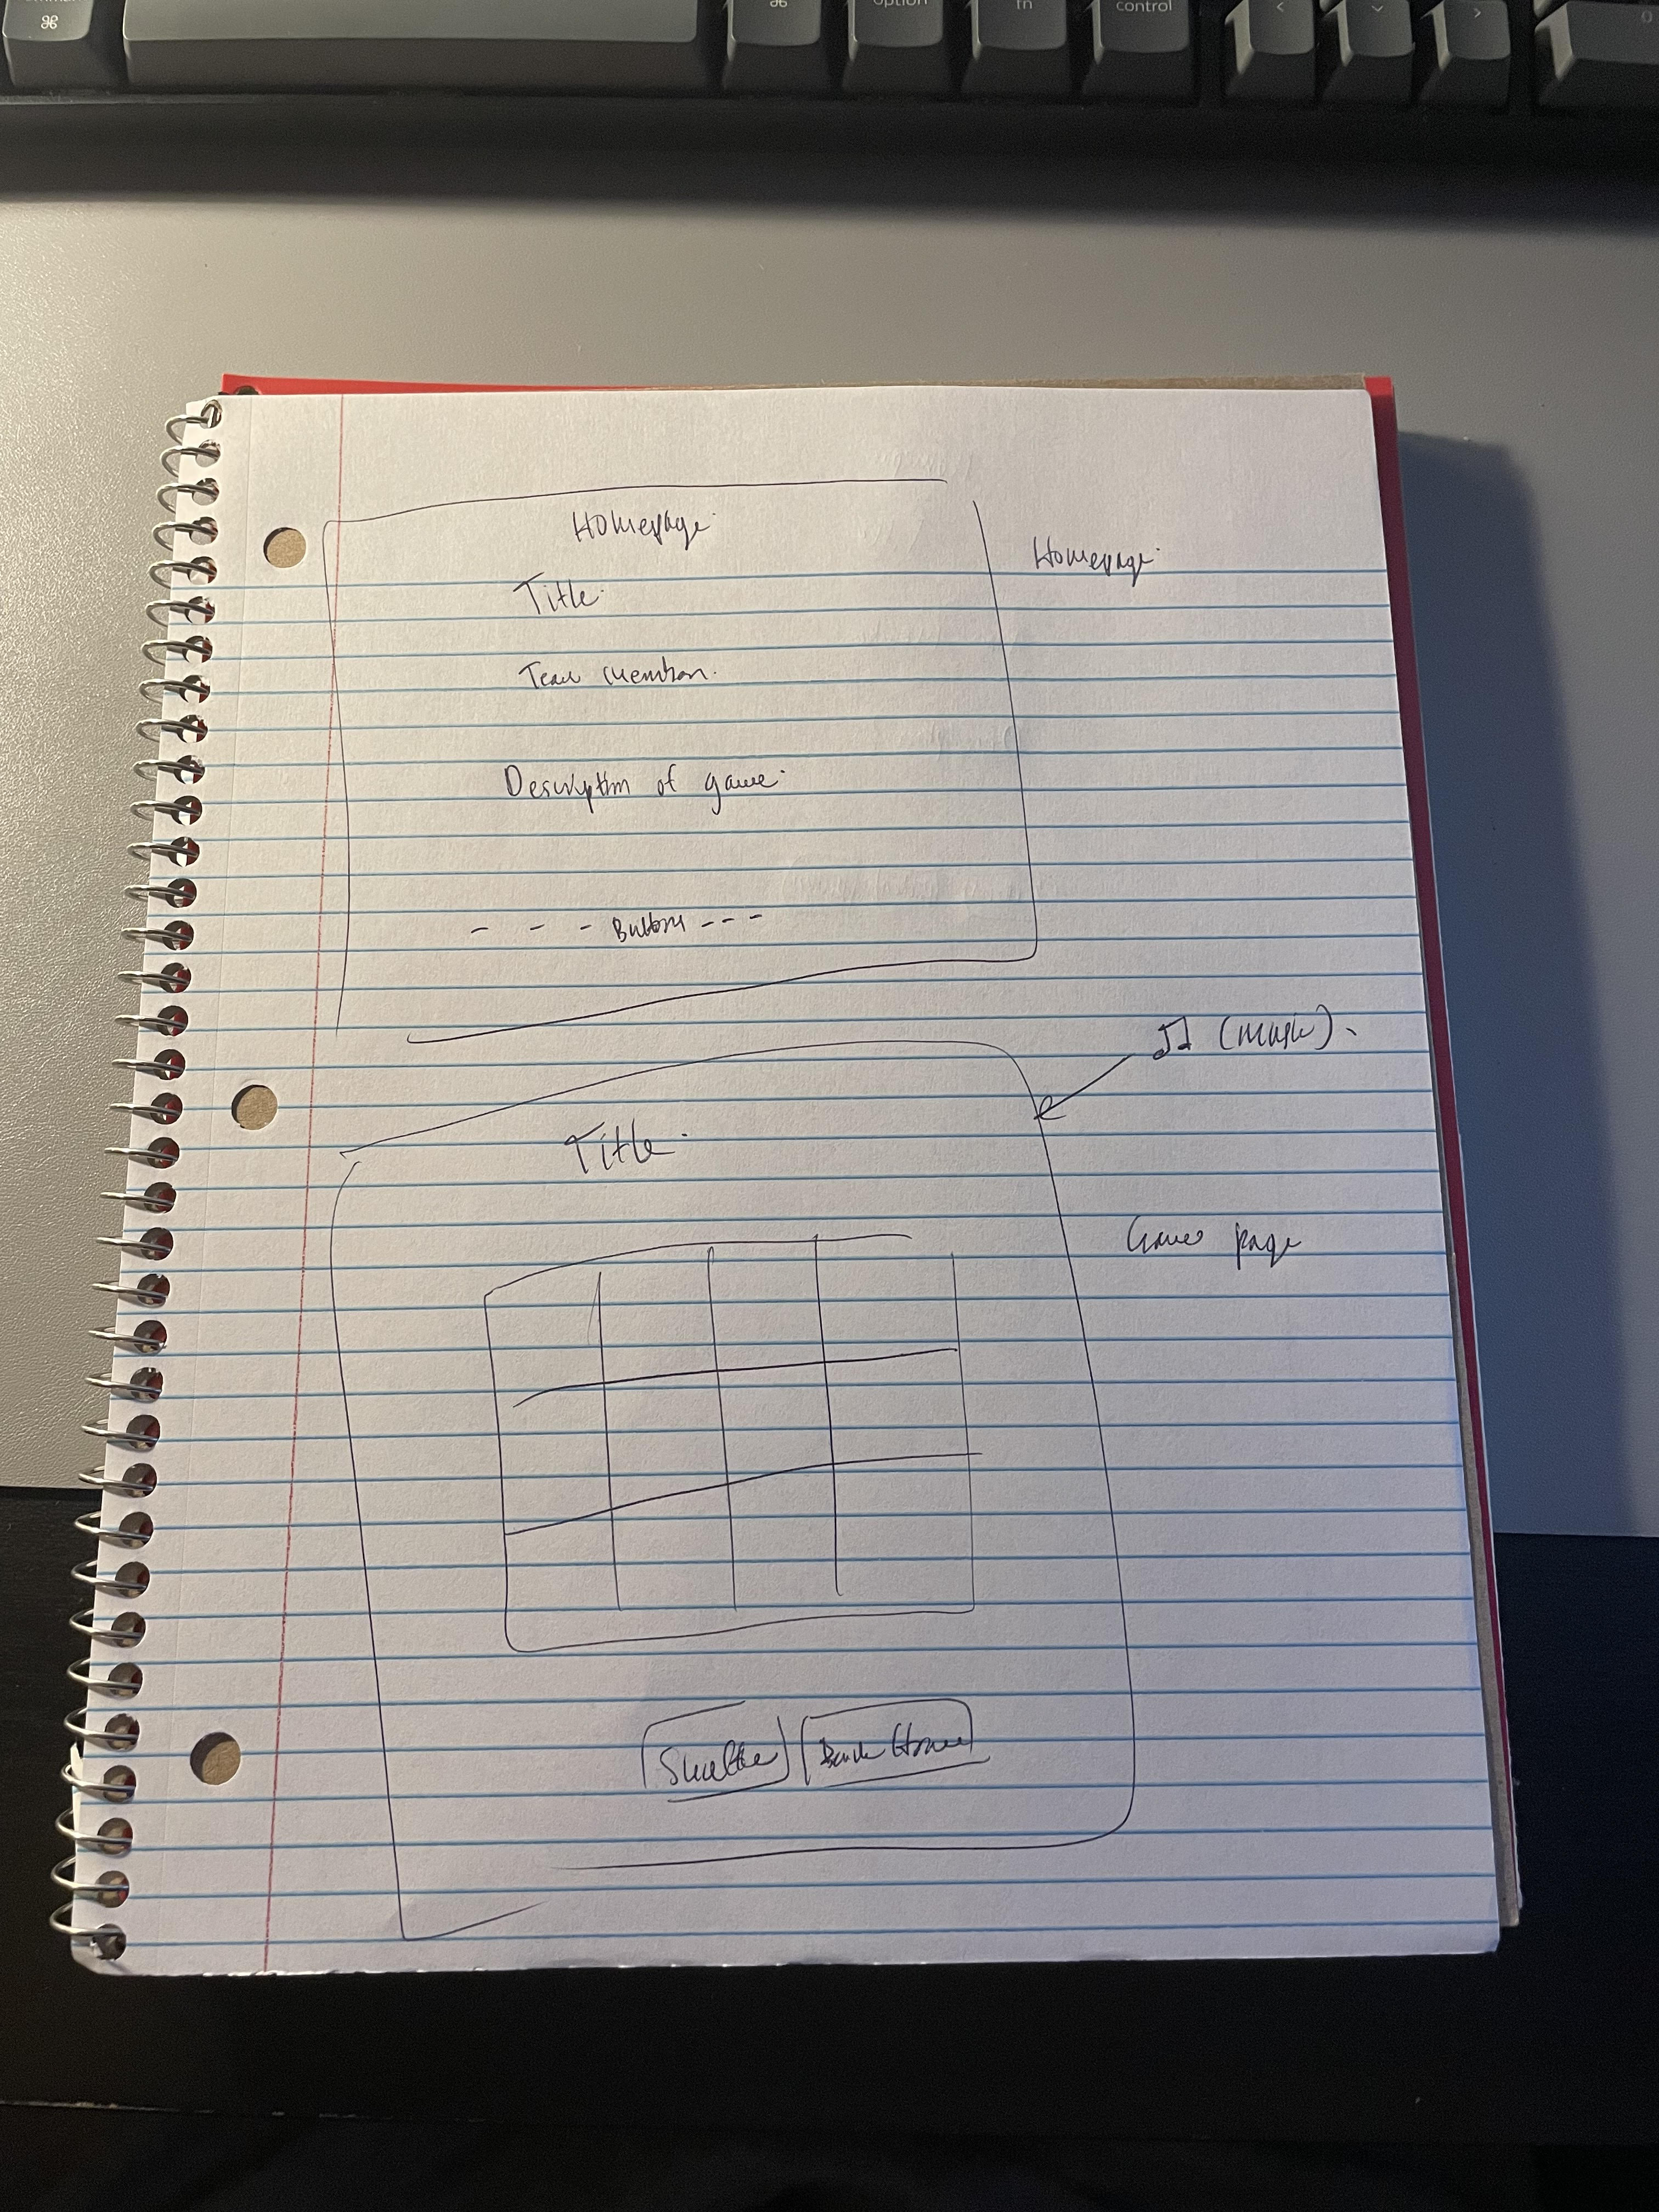 ⌘
⌘
option
fn
control
Homepage
Homepage
Title
Team members
Description of game
- - - Buttons - - -
♫ (music)
Title
Game page
Shuffle
Back Home